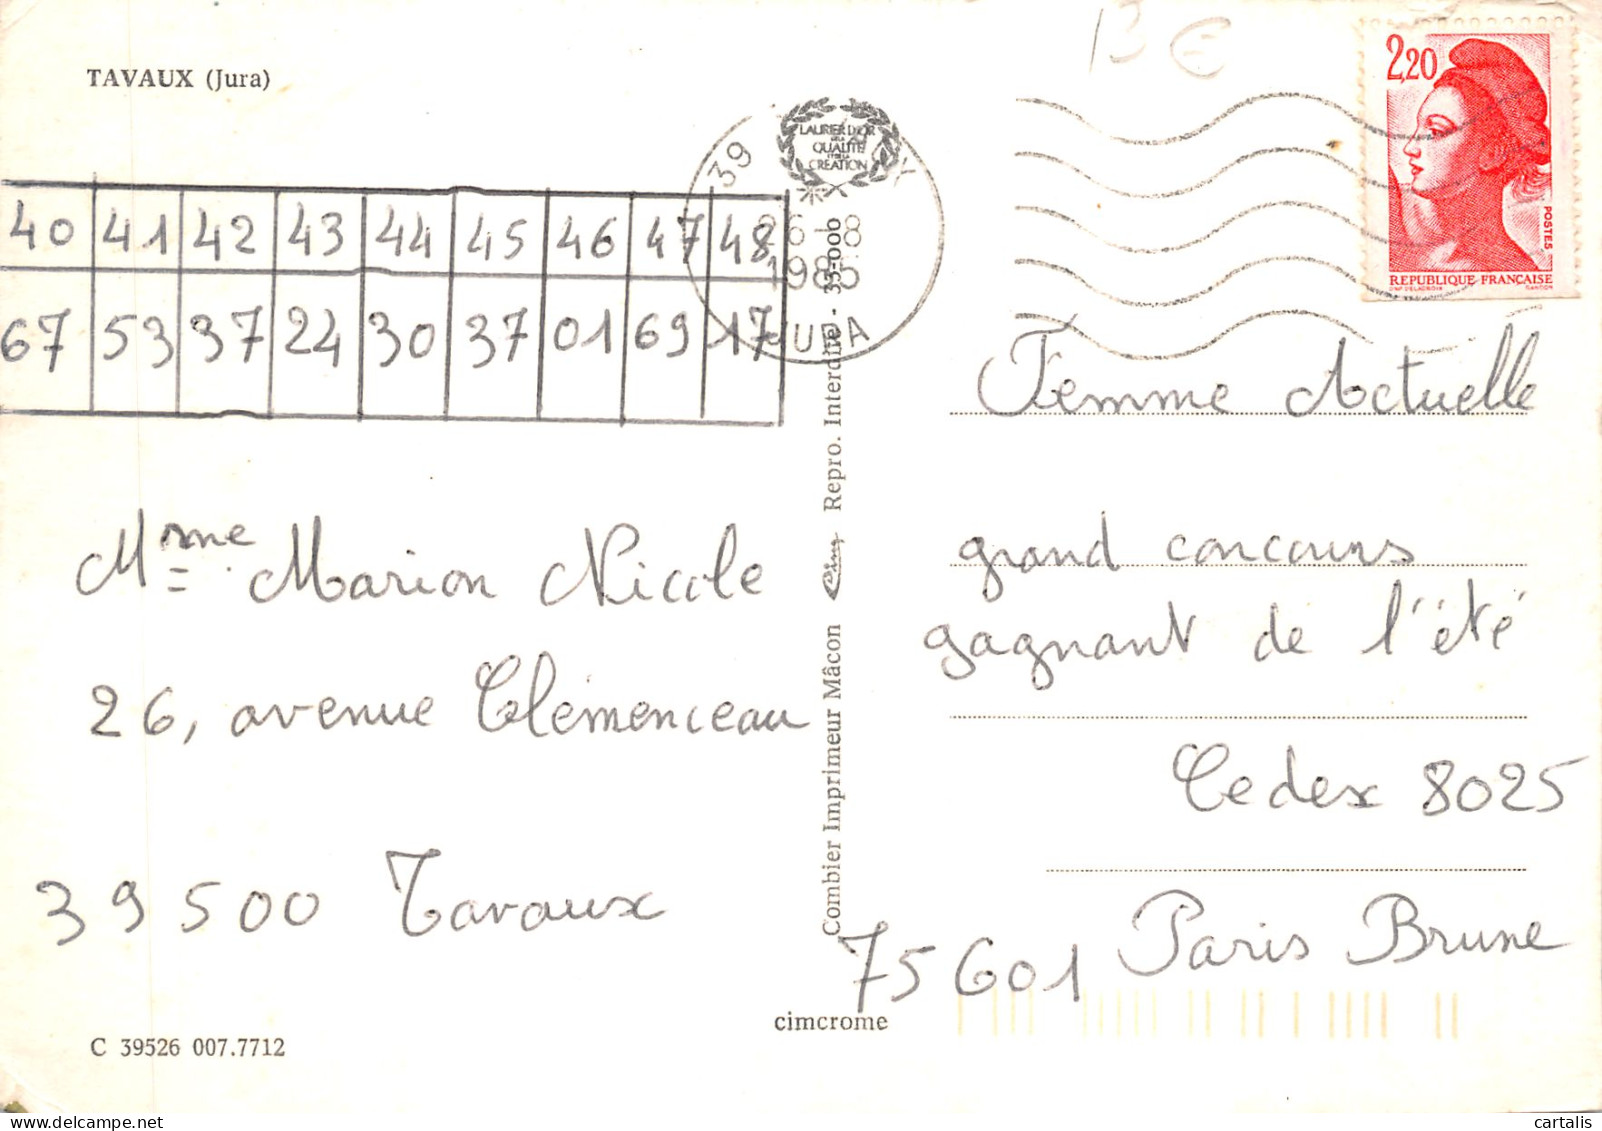 TAVAUX (Jura)
13 €
2,20
POSTES
REPUBLIQUE FRANÇAISE
LAURIER D'OR
DE LA
QUALITE
ET DE LA
CREATION
39
26-8
JURA
40 41 42 43 44 45 46 47 48
67 53 37 24 30 37 01 69 17
Mme Marion Nicole
26, avenue Clémenceau
39500 Tavaux
C 39526 007.7712
Combier Imprimeur Mâcon Cim Repro. Interdite - 33-000
cimcrome
Femme Actuelle
grand concours
gagnant de l'été
Cedex 8025
75601 Paris Brune
cartalis